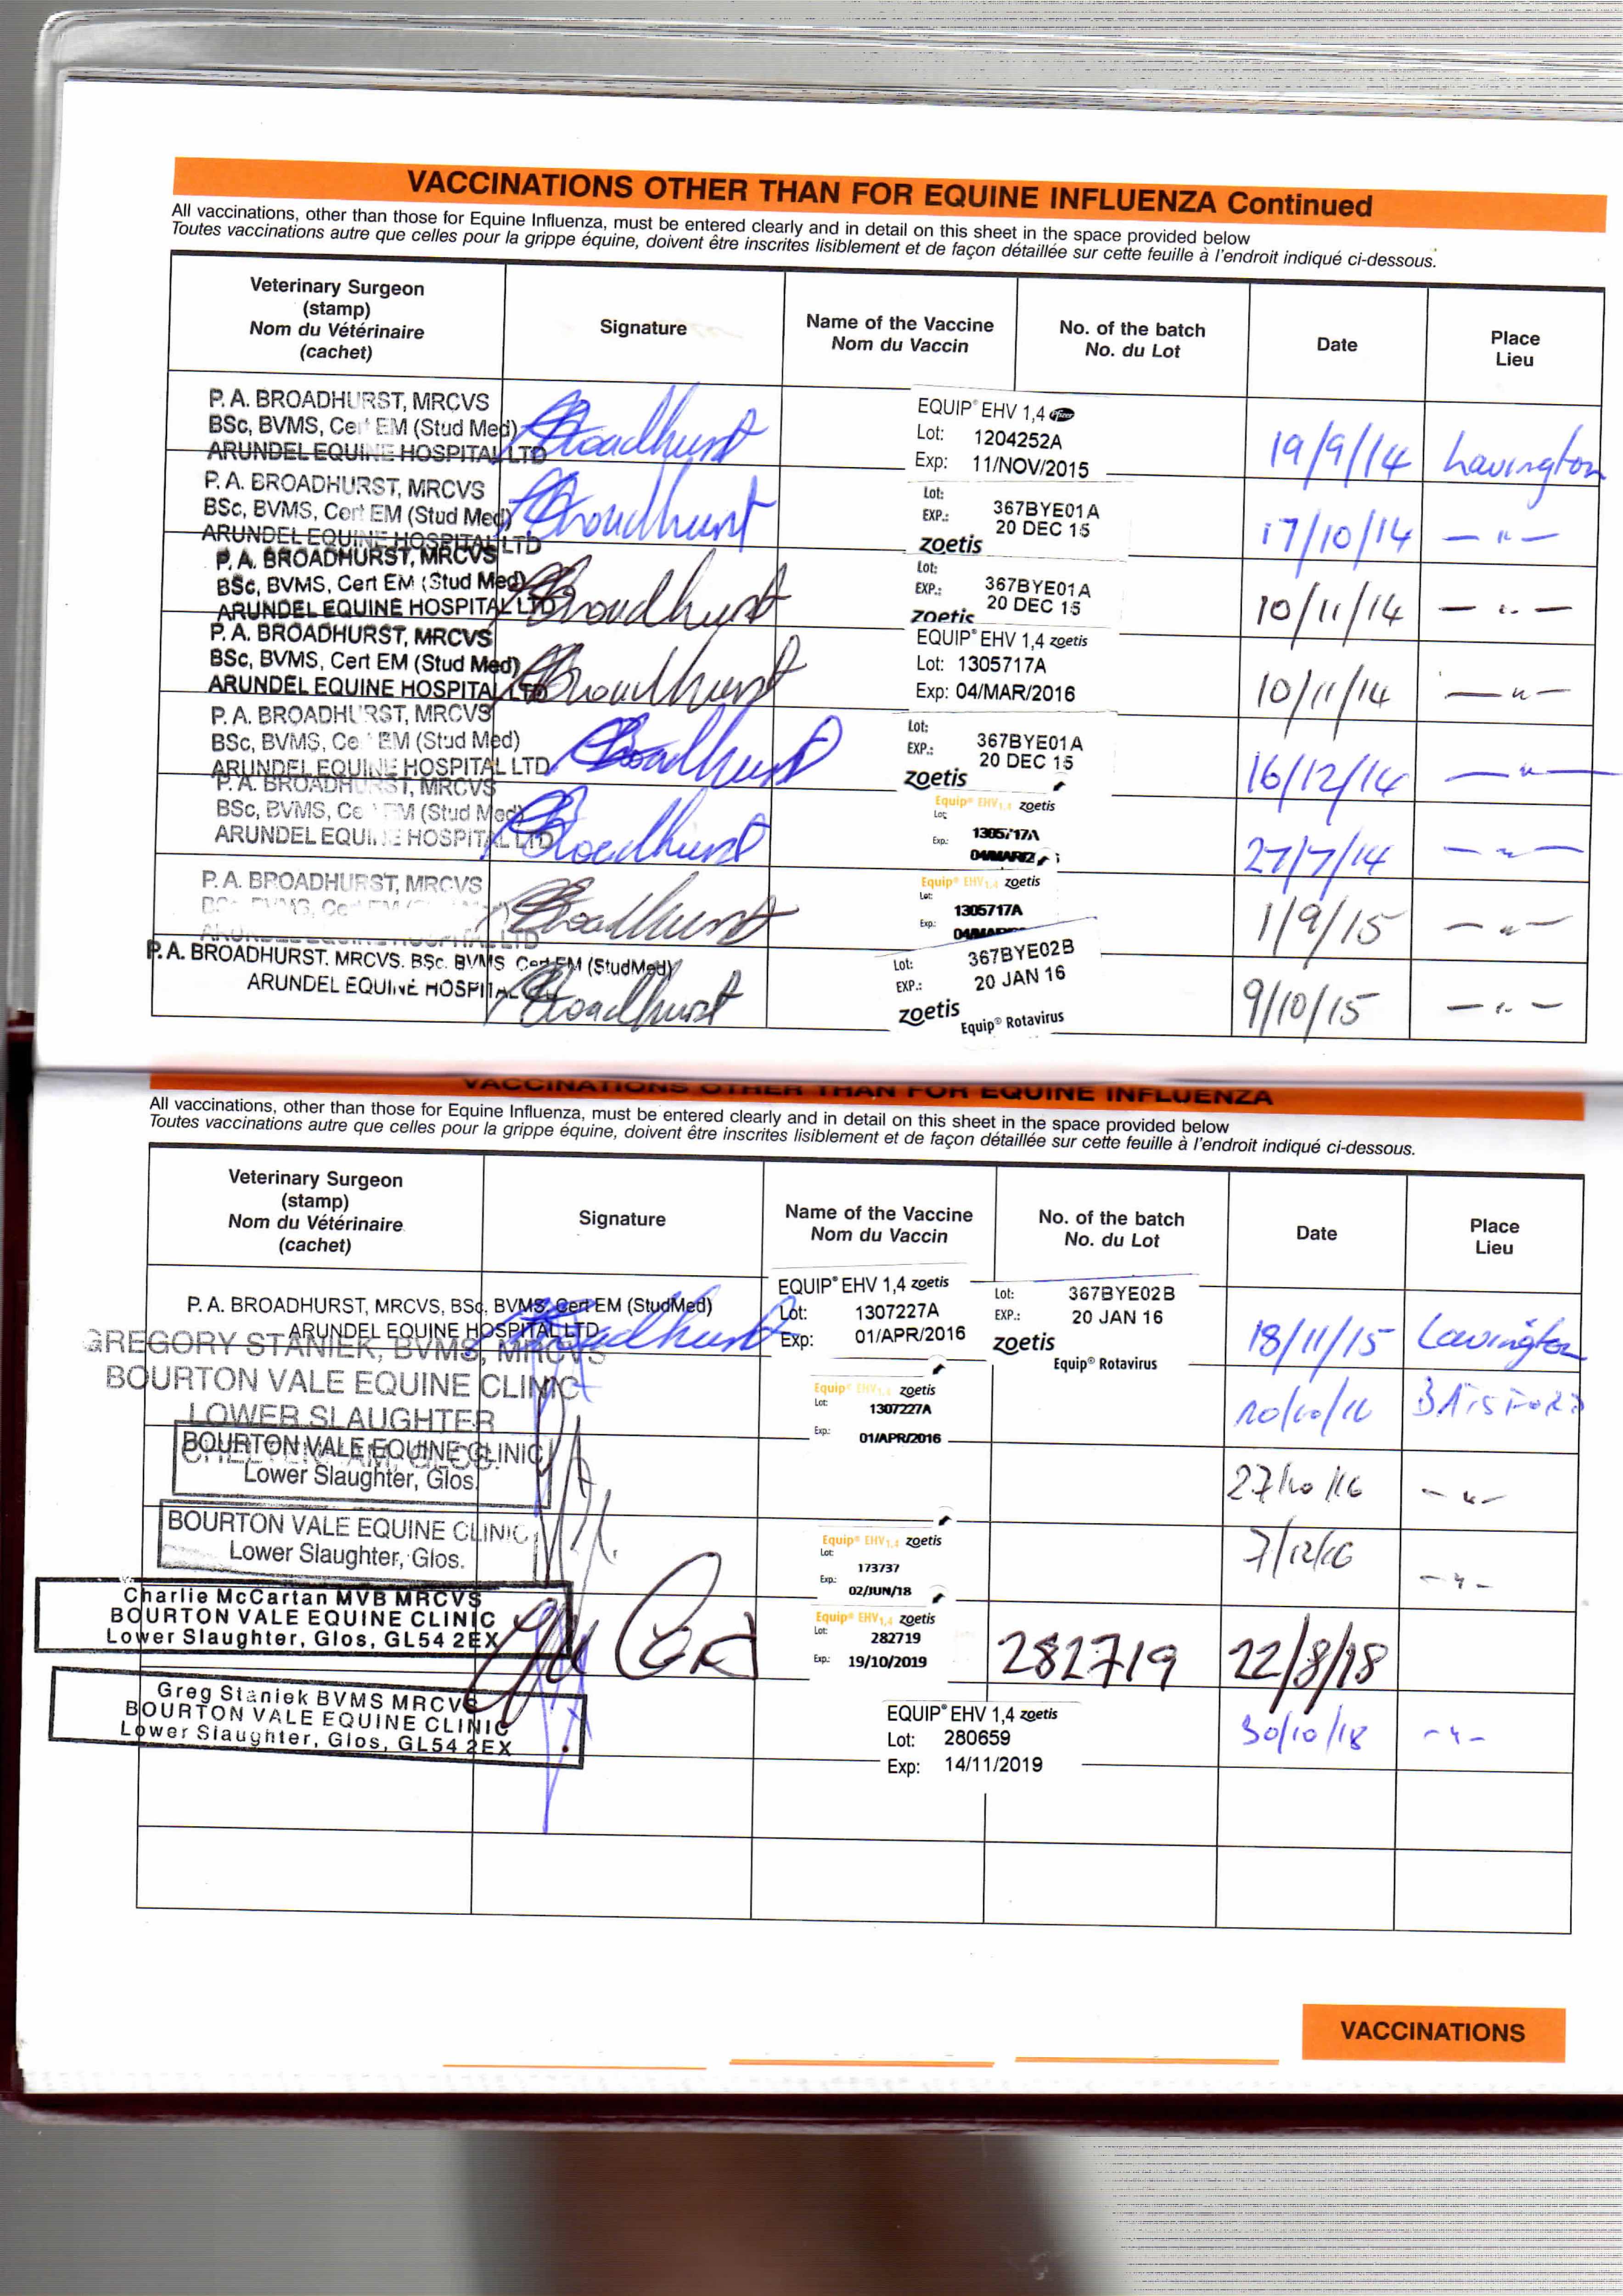 VACCINATIONS OTHER THAN FOR EQUINE INFLUENZA Continued
All vaccinations, other than those for Equine Influenza, must be entered clearly and in detail on this sheet in the space provided below
Toutes vaccinations autre que celles pour la grippe équine, doivent être inscrites lisiblement et de façon détaillée sur cette feuille à l'endroit indiqué ci-dessous.
Veterinary Surgeon
(stamp)
Nom du Vétérinaire
(cachet)
Signature
Name of the Vaccine
Nom du Vaccin
No. of the batch
No. du Lot
Date
Place
Lieu
P. A. BROADHURST, MRCVS
BSc, BVMS, Cert EM (Stud Med)
ARUNDEL EQUINE HOSPITAL LTD
Broadhurst
EQUIP® EHV 1,4 Pfizer
Lot: 1204252A
Exp: 11/NOV/2015
19/9/14
Lavington
P. A. BROADHURST, MRCVS
BSc, BVMS, Cert EM (Stud Med)
ARUNDEL EQUINE HOSPITAL LTD
Broadhurst
Lot: 367BYE01A
EXP.: 20 DEC 15
zoetis
17/10/14
— " —
P. A. BROADHURST, MRCVS
BSc, BVMS, Cert EM (Stud Med)
ARUNDEL EQUINE HOSPITAL LTD
Broadhurst
Lot: 367BYE01A
EXP.: 20 DEC 15
zoetis
10/11/14
— " —
P. A. BROADHURST, MRCVS
BSc, BVMS, Cert EM (Stud Med)
ARUNDEL EQUINE HOSPITAL LTD
Broadhurst
EQUIP® EHV 1,4 zoetis
Lot: 1305717A
Exp: 04/MAR/2016
10/11/14
— " —
P. A. BROADHURST, MRCVS
BSc, BVMS, Ce EM (Stud Med)
ARUNDEL EQUINE HOSPITAL LTD
Broadhurst
Lot: 367BYE01A
EXP.: 20 DEC 15
zoetis
16/12/14
— " —
P. A. BROADHURST, MRCVS
BSc, BVMS, Ce EM (Stud Med)
ARUNDEL EQUINE HOSPITAL LTD
Broadhurst
Equip® EHV1,4 zoetis
Lot: 1305717A
Exp.:
27/7/14
— " —
P. A. BROADHURST, MRCVS
Broadhurst
Equip® EHV1,4 zoetis
Lot: 1305717A
Exp.:
1/9/15
— " —
P. A. BROADHURST. MRCVS. BSc. BVMS Cert EM (StudMed)
ARUNDEL EQUINE HOSPITAL
Broadhurst
Lot: 367BYE02B
EXP.: 20 JAN 16
zoetis Equip® Rotavirus
9/10/15
— " —
VACCINATIONS OTHER THAN FOR EQUINE INFLUENZA
All vaccinations, other than those for Equine Influenza, must be entered clearly and in detail on this sheet in the space provided below
Toutes vaccinations autre que celles pour la grippe équine, doivent être inscrites lisiblement et de façon détaillée sur cette feuille à l'endroit indiqué ci-dessous.
Veterinary Surgeon
(stamp)
Nom du Vétérinaire
(cachet)
Signature
Name of the Vaccine
Nom du Vaccin
No. of the batch
No. du Lot
Date
Place
Lieu
P. A. BROADHURST, MRCVS, BSc, BVMS, Cert EM (StudMed)
ARUNDEL EQUINE HOSPITAL LTD
Broadhurst
EQUIP® EHV 1,4 zoetis
Lot: 1307227A
Exp: 01/APR/2016
Lot: 367BYE02B
EXP.: 20 JAN 16
zoetis
Equip® Rotavirus
18/11/15
Lavington
GREGORY STANIEK, BVMS, MRCVS
BOURTON VALE EQUINE CLINIC
LOWER SLAUGHTER
Equip® EHV1,4 zoetis
Lot: 1307227A
Exp.: 01/APR/2016
BATSFORD
BOURTON VALE EQUINE CLINIC
Lower Slaughter, Glos.
27/10/16
— " —
BOURTON VALE EQUINE CLINIC
Lower Slaughter, Glos.
Equip® EHV1,4 zoetis
Lot: 173737
Exp.: 02/JUN/18
7/12/16
— " —
Charlie McCartan MVB MRCVS
BOURTON VALE EQUINE CLINIC
Lower Slaughter, Glos, GL54 2EX
Equip® EHV1,4 zoetis
Lot: 282719
Exp.: 19/10/2019
282719
22/8/18
Greg Staniek BVMS MRCVS
BOURTON VALE EQUINE CLINIC
Lower Slaughter, Glos, GL54 2EX
EQUIP® EHV 1,4 zoetis
Lot: 280659
Exp: 14/11/2019
30/10/18
— " —
VACCINATIONS